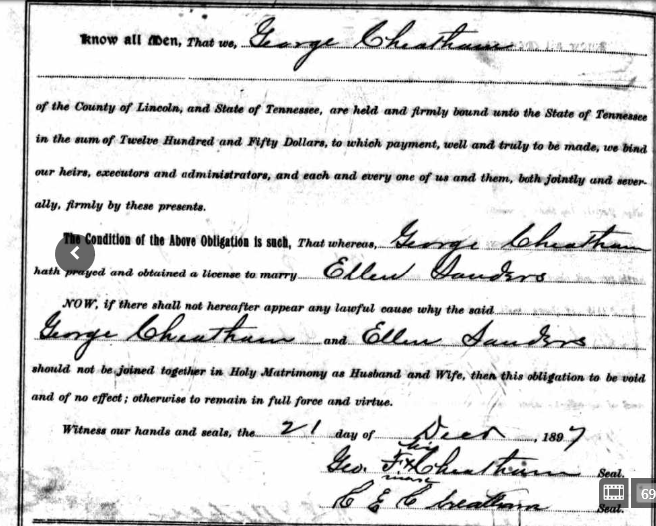 Know all Men, That we, George Cheatham
of the County of Lincoln, and State of Tennessee, are held and firmly bound unto the State of Tennessee
in the sum of Twelve Hundred and Fifty Dollars, to which payment, well and truly to be made, we bind
our heirs, executors and administrators, and each and every one of us and them, both jointly and sever-
ally, firmly by these presents.
The Condition of the Above Obligation is such, That whereas, George Cheatham
hath prayed and obtained a license to marry Ellen Sanders
NOW, if there shall not hereafter appear any lawful cause why the said
George Cheatham and Ellen Sanders
should not be joined together in Holy Matrimony as Husband and Wife, then this obligation to be void
and of no effect; otherwise to remain in full force and virtue.
Witness our hands and seals, the 21 day of 1897
his
Geo. X Cheatham Seal.
mark
C E Cheatham Seal.
69